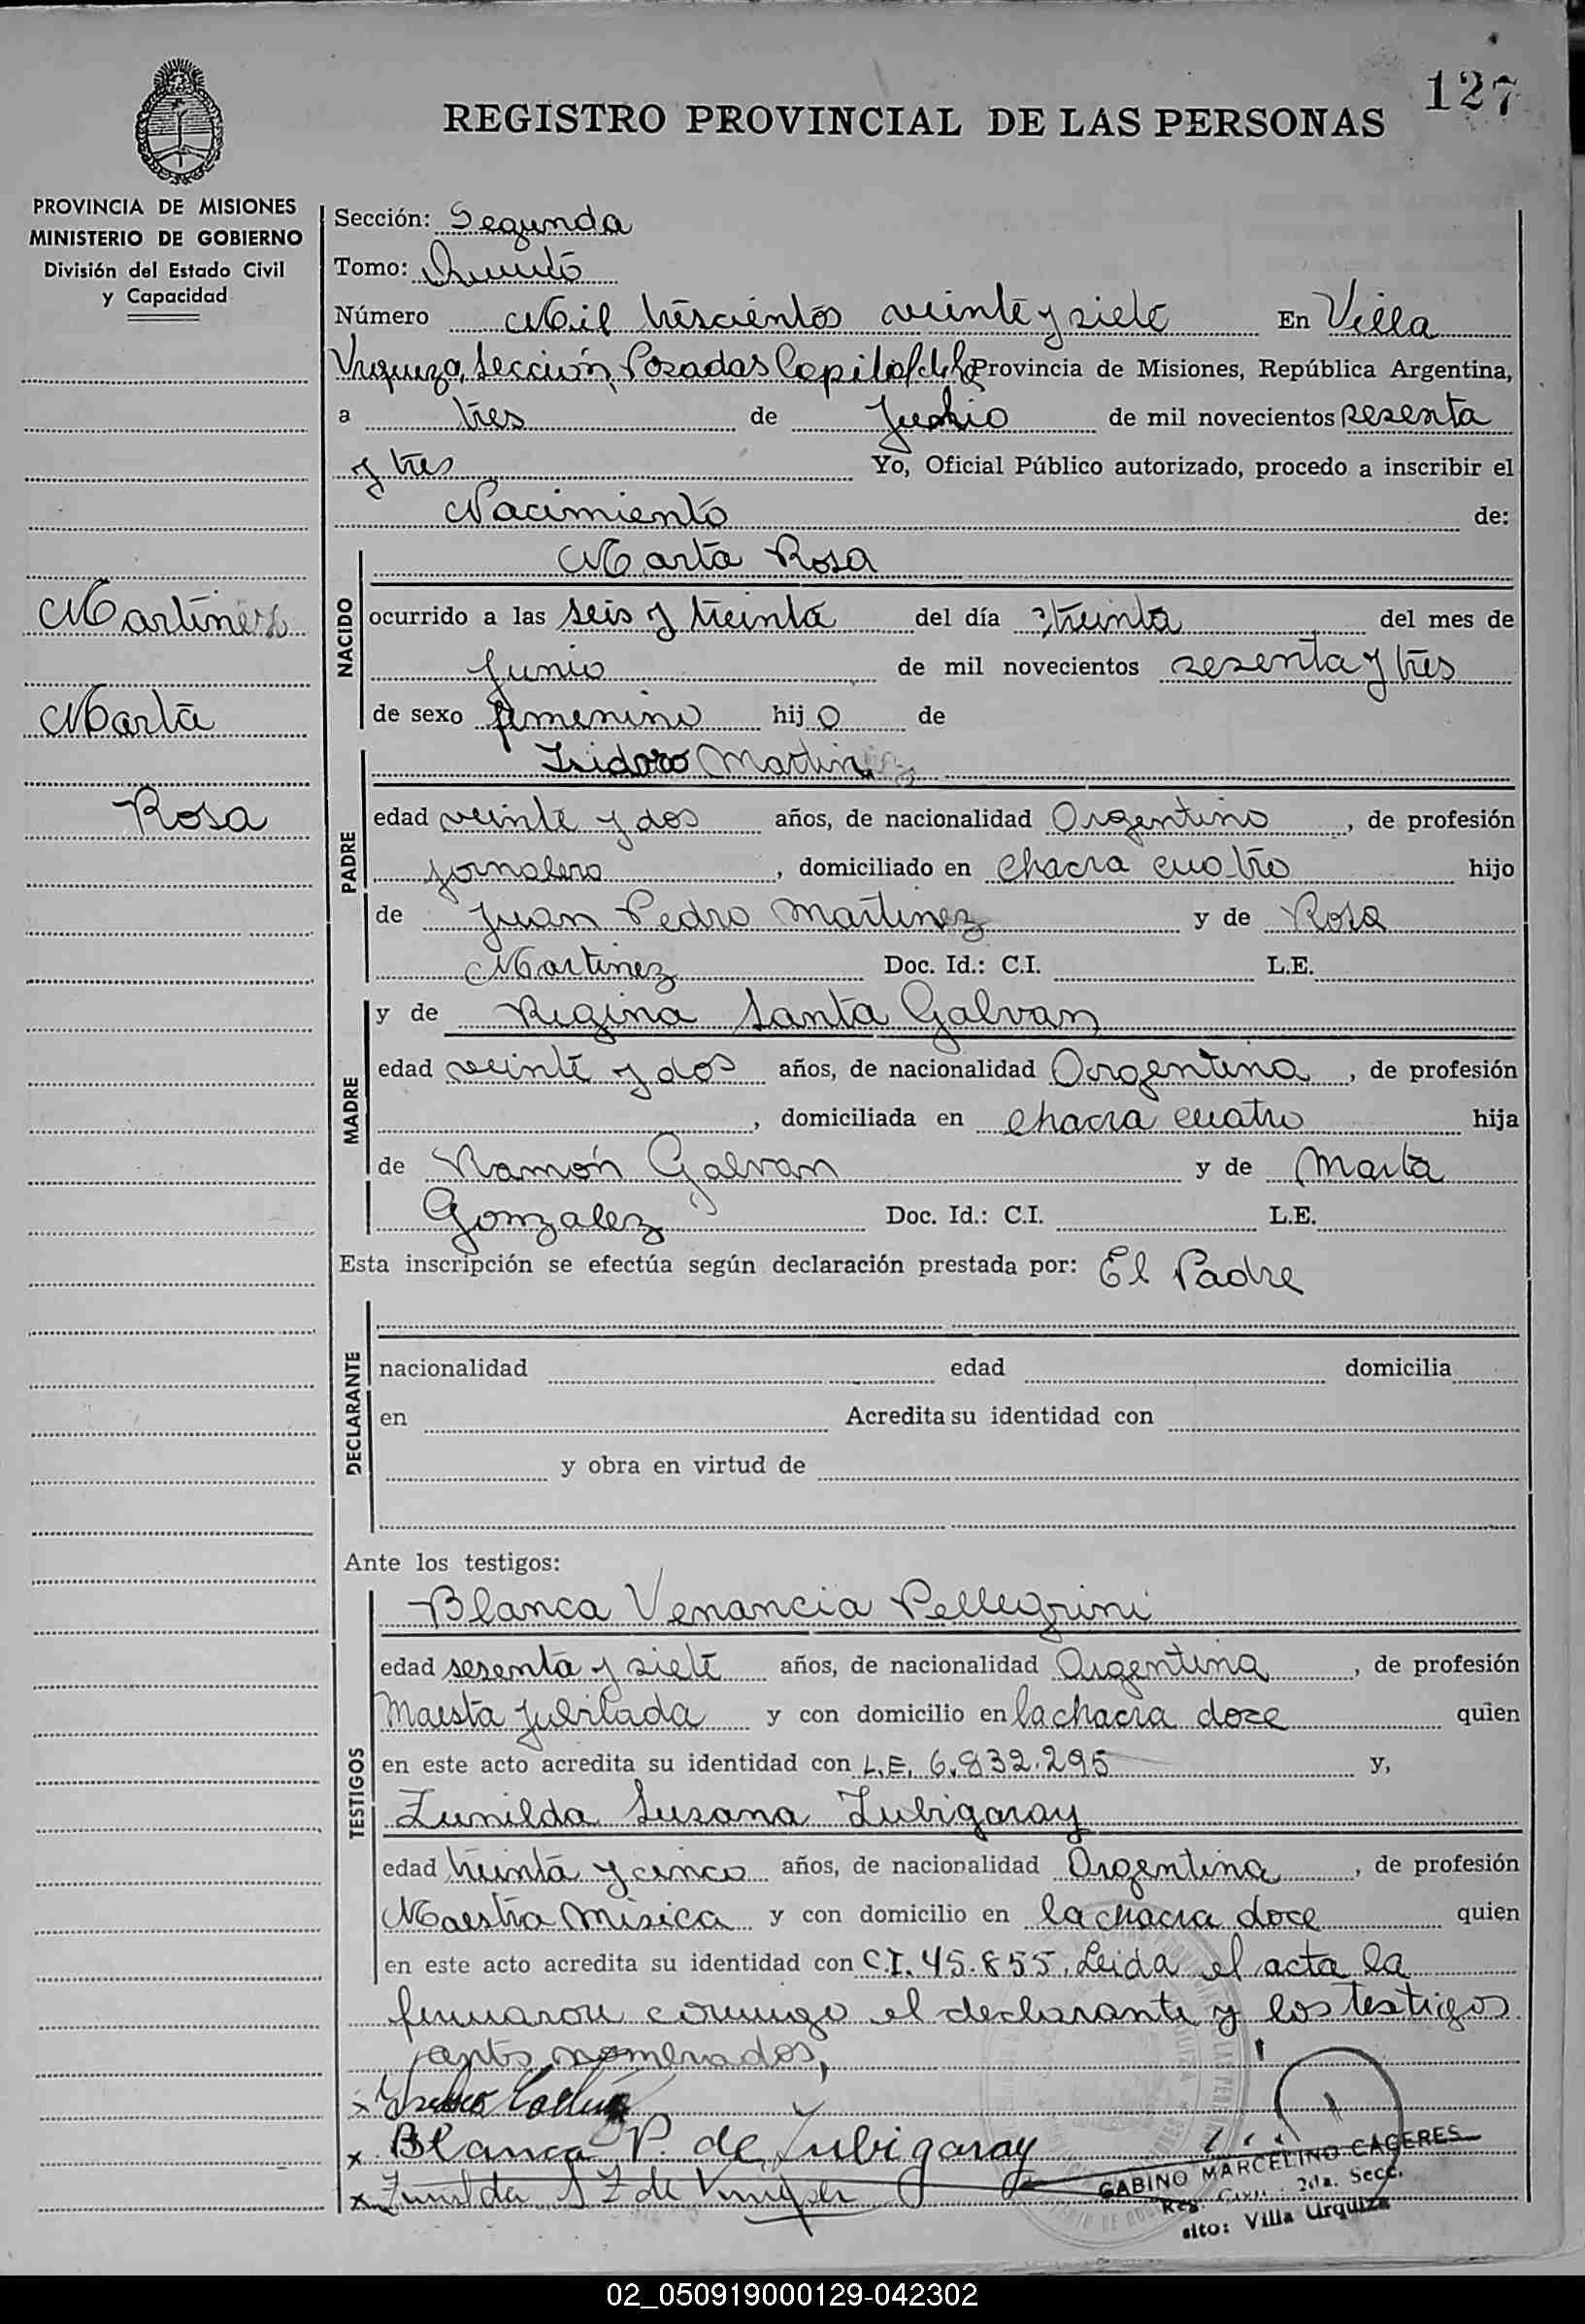 127
REGISTRO PROVINCIAL DE LAS PERSONAS
PROVINCIA DE MISIONES
MINISTERIO DE GOBIERNO
División del Estado Civil
y Capacidad
Martinez
Marta
Rosa
Sección: Segunda
Tomo: Quinto
Número Mil trescientos veinte y siete En Villa
Urquiza, Sección, Posadas Capital de la Provincia de Misiones, República Argentina,
a tres de Julio de mil novecientos sesenta
y tres Yo, Oficial Público autorizado, procedo a inscribir el
Nacimiento de:
Marta Rosa
NACIDO
ocurrido a las seis y treinta del día treinta del mes de
Junio de mil novecientos sesenta y tres
de sexo femenino hijo de
Isidoro Martinez
PADRE
edad veinte y dos años, de nacionalidad Argentino, de profesión
jornalero, domiciliado en chacra cuatro hijo
de Juan Pedro Martinez y de Rosa
Martinez Doc. Id.: C.I. L.E.
MADRE
y de Regina Santa Galvan
edad veinte y dos años, de nacionalidad Argentina, de profesión
, domiciliada en chacra cuatro hija
de Ramón Galvan y de Marta
Gonzalez Doc. Id.: C.I. L.E.
Esta inscripción se efectúa según declaración prestada por: El Padre
DECLARANTE
nacionalidad edad domicilia
en Acredita su identidad con
y obra en virtud de
Ante los testigos:
TESTIGOS
Blanca Venancia Pellegrini
edad sesenta y siete años, de nacionalidad Argentina, de profesión
Maesta jubilada y con domicilio en la chacra doce quien
en este acto acredita su identidad con L.E. 6.832.295 y,
Zunilda Susana Zubigaray
edad treinta y cinco años, de nacionalidad Argentina, de profesión
Maestra Música y con domicilio en la chacra doce quien
en este acto acredita su identidad con C.I. 45.855. Leida el acta la
firmaron conmigo el declarante y los testigos
antes nombrados,
x
x Blanca P. de Zubigaray
x Zunilda S Z de
GABINO MARCELINO CACERES
Reg. Civil 2da. Secc.
sito: Villa Urquiza
02_050919000129-042302